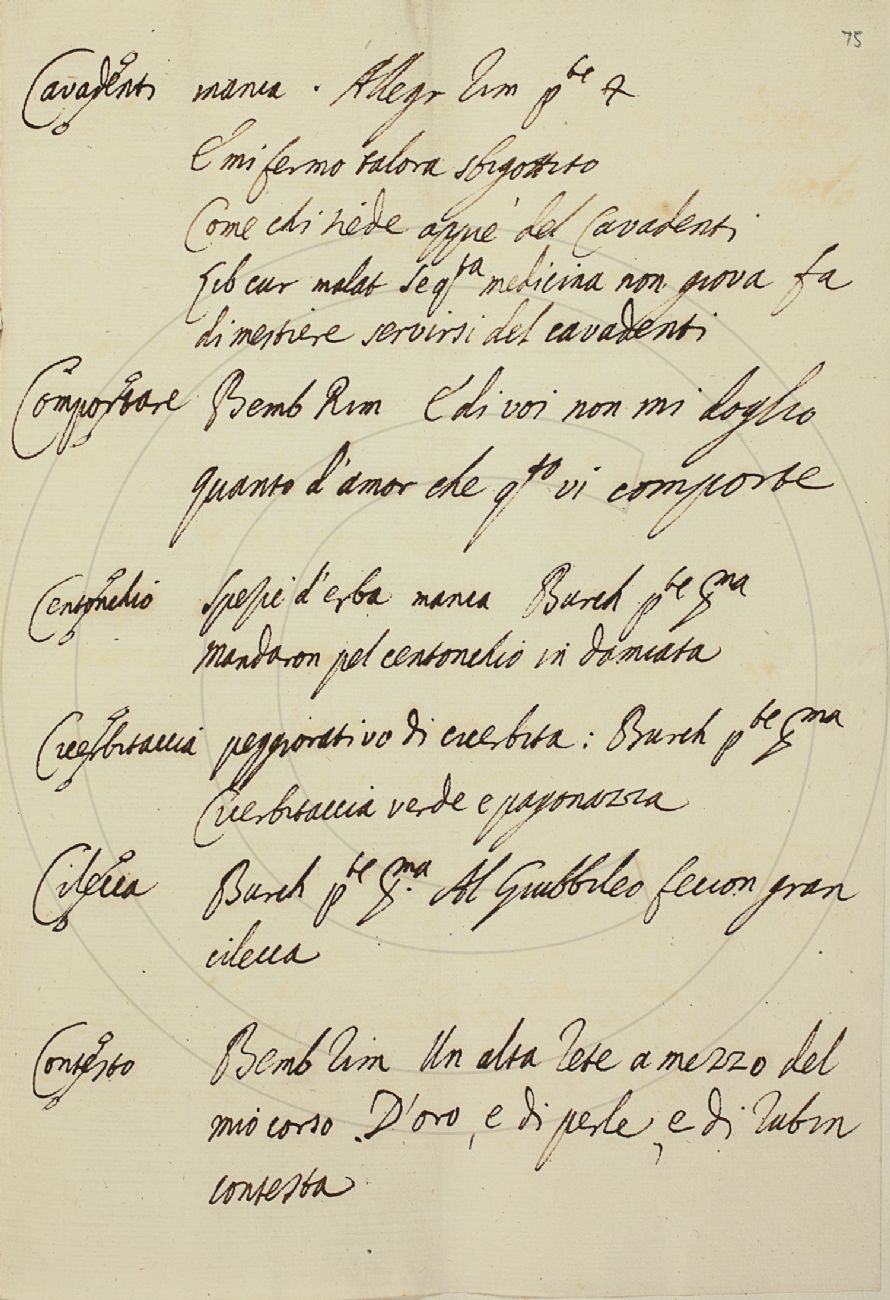 75
Cavadenti manca . Allegr Rim p.te 7
E mi fermo talora sbigottito
Come chi siede appiè del Cavadenti
Lib cur malat Se q.ta medicina non giova fa
di mestiere servirsi del cavadenti
Comportare Bemb Rim E di voi non mi doglio
quanto d'amor che q.to vi comporte
Centonchio spezie d'erba manca Burch p.te p.ma
Mandaron pel centonchio in damiata
Cuerbitaccia peggiorativo di cuerbita : Burch p.te p.ma
Cuerbitaccia verde e pagonazza
Cilecca Burch p.te p.ma Al Giubbileo feccion gran
cilecca
Contesto Bemb Rim Un alta rete a mezzo del
mio corso D'oro, e di perle, e di rubin
contesta